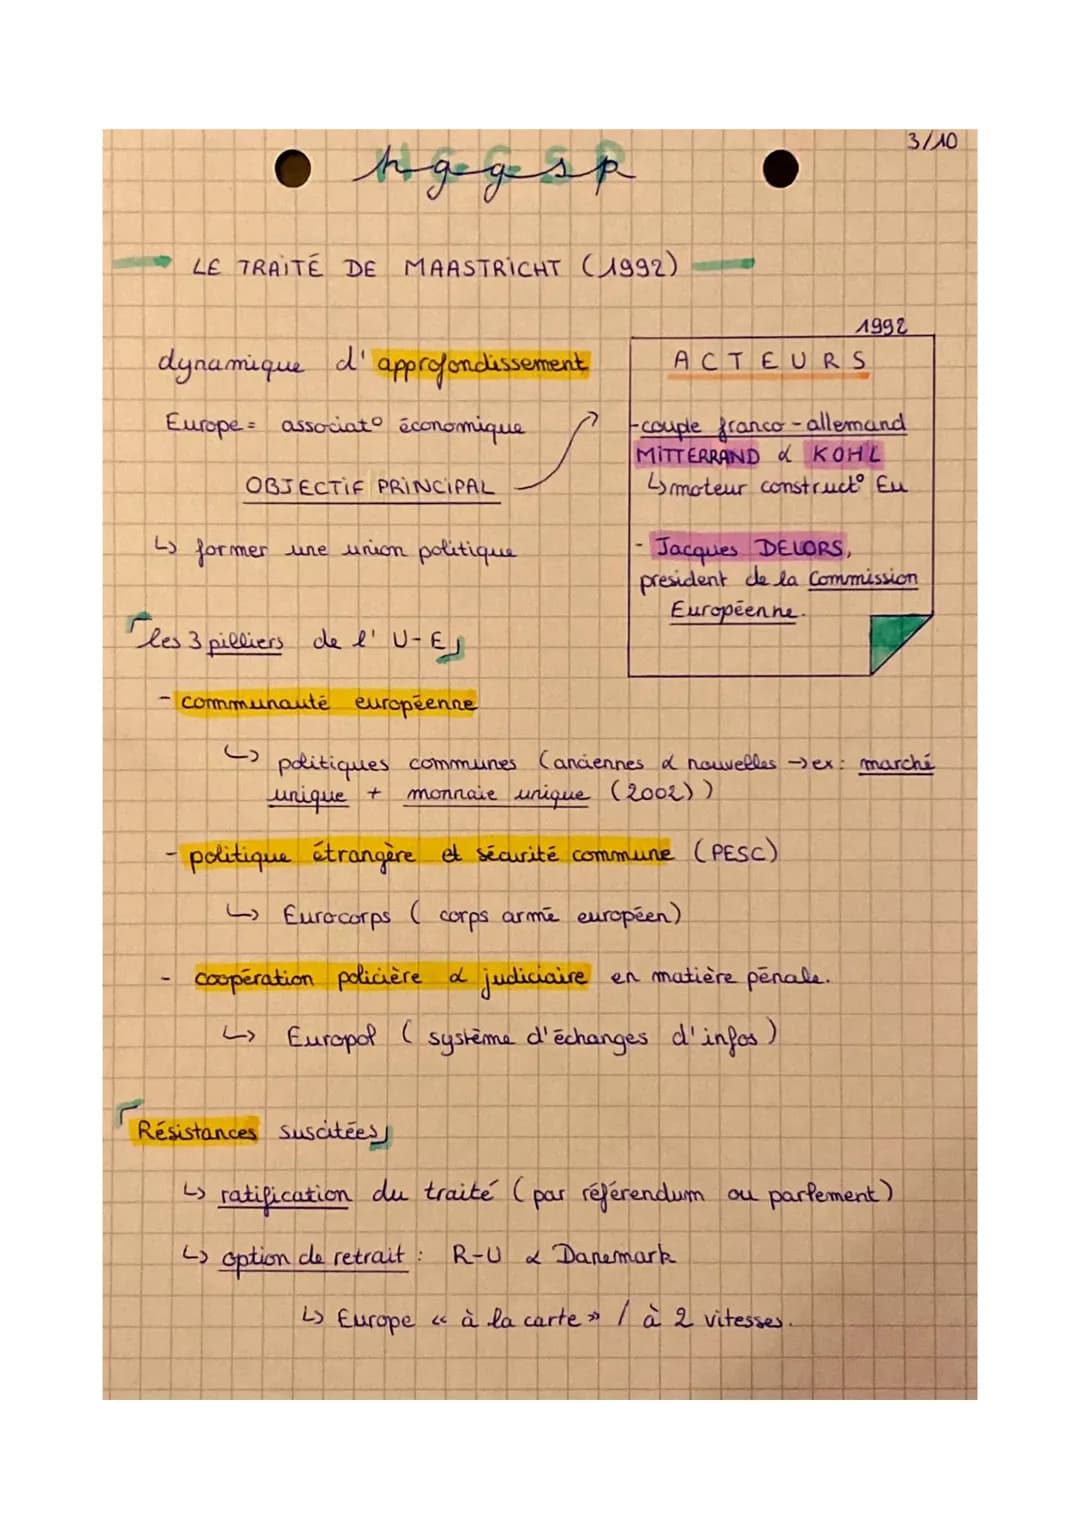 3/10
hggsp
LE TRAITÉ DE MAASTRICHT (1992)
dynamique d'approfondissement
Europe = associat° économique
OBJECTIF PRINCIPAL
↳ former une union politique
1992
ACTEURS
- couple franco-allemand
MITTERRAND & KOHL
↳ moteur construct° Eu
- Jacques DELORS,
president de la Commission
Européenne.
les 3 pilliers de l'U-E
- communauté européenne
↳ politiques communes (anciennes & nouvelles → ex: marché
unique + monnaie unique (2002))
- politique étrangère et sécurité commune (PESC)
↳ Eurocorps (corps armé européen)
- coopération policière & judiciaire en matière pénale.
↳ Europol (système d'échanges d'infos)
Résistances suscitées
↳ ratification du traité (par référendum ou parlement)
↳ option de retrait : R-U & Danemark
↳ Europe « à la carte » / à 2 vitesses.